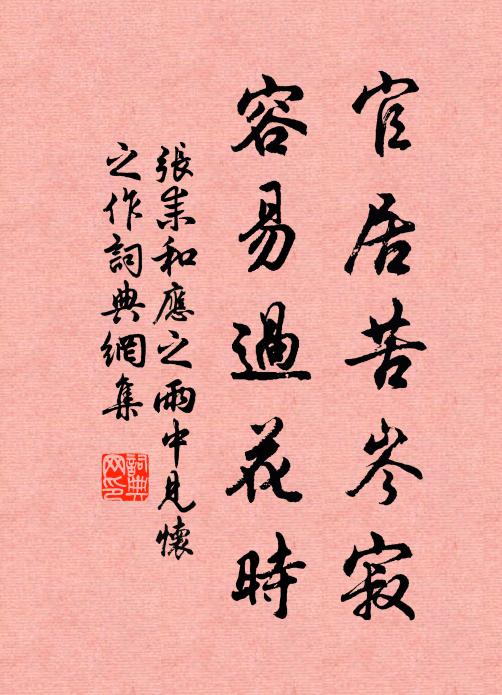 官居苦岑寂
容易過花時
張耒和應之雨中見懷
之作詞典網集
詞典网印